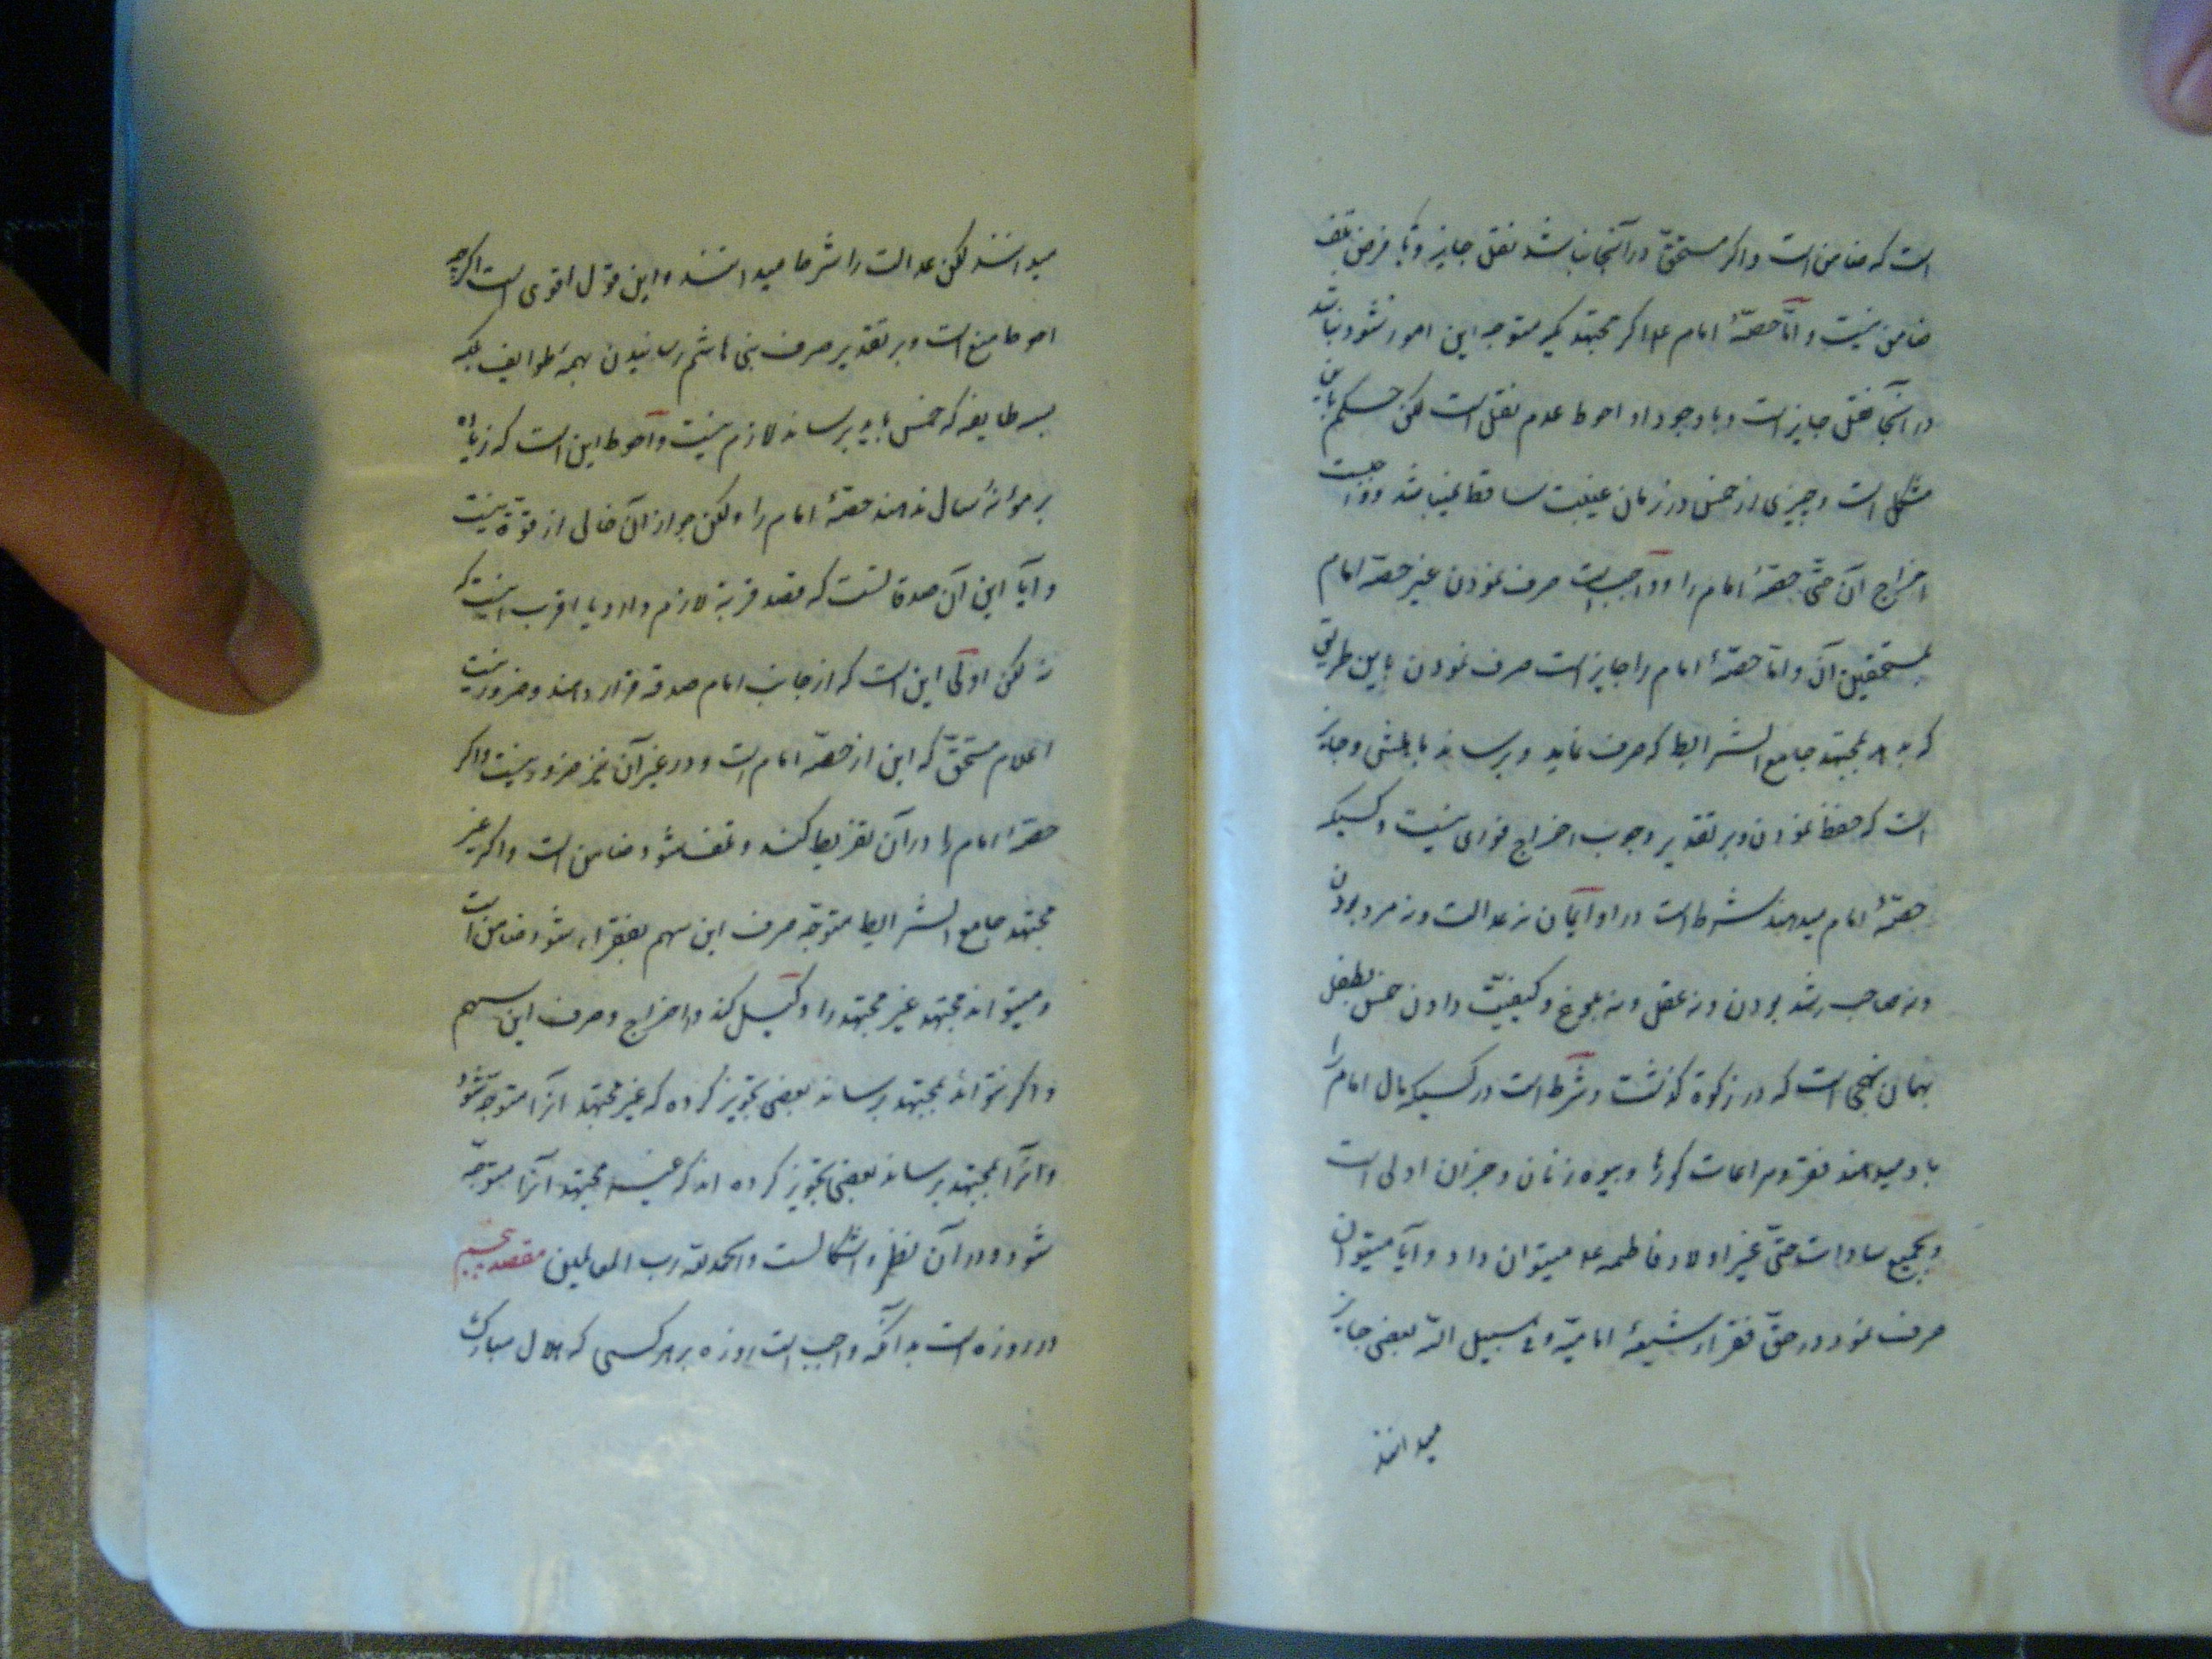 است که ضامن است و اگر مستحق در آنجا نباشد نقل جایز و با فرض تلف
ضامن نیست و اما حصهٔ امام ع اگر مجتهد دیگر متوجه این امور نشود نباشد
در آنجا نقل جایز است و با وجود او احوط عدم نقل است لکن حکم باین
مشکل است و چیزی از خمس در زمان غیبت ساقط نمیباشد و واجبست
اخراج آن حتی حصهٔ امام را و واجبست صرف نمودن غیر حصه امام
بمستحقین آن و اما حصهٔ امام را جایز است صرف نمودن باین طریق
که بدهد بمجتهد جامع الشرایط که صرف نماید و برساند باهلش و جایز
است که حفظ نمودن و بر تقدیر وجوب اخراج فوری نیست و کسیکه
حصهٔ امام میدهند شرط است در او ایمان نه عدالت و نه مرد بودن
و نه صاحب رشد بودن و نه عقل و نه بلوغ و کیفیت دادن خمس بطفل
بهمان نهجی است که در زکوة گذشت و شرط است در کسیکه مال امام را
باو میدهند فقر و مراعات کورها و بیوه زنان و جیران اولی است
و بجمیع سادات حتی غیر اولاد فاطمه ع میتوان داد و آیا میتوان
صرف نمود در حق فقراء شیعهٔ امامیه و فی سبیل الله بعضی جایز
میدانند
میدانند لکن عدالت را شرط میدانند و این قول اقوی است اگرچه
احوط منع است و بر تقدیر صرف بنی هاشم رسانیدن بهمهٔ طوایف بلکه
بسه طایفه که خمس باید برساند لازم نیست و احوط این است که زیاده
بر مؤنهٔ سال ندهند حصهٔ امام را ولکن جواز آن خالی از قوة نیست
و آیا این آن صدقاتست که قصد قربة لازم دارد یا اقرب اینست که
نه لکن اولی این است که از جانب امام صدقه قرار دهند و ضرور نیست
اعلام مستحق که این از حصه امام است و در غیر آن نیز ضرور نیست و اگر
حصه امام را در آن تفریط کند و تلف شود ضامن است و اگر غیر
مجتهد جامع الشرایط متوجه صرف این سهم بفقراء شود ضامن است
و میتواند مجتهد غیر مجتهد را وکیل کند در اخراج و صرف این سهم
و اگر نتواند بمجتهد برساند بعضی تجویز کرده که غیر مجتهد آنرا متوجه شود
و آنرا بمجتهد برساند بعضی تجویز کرده اند که غیر مجتهد آنرا متوجه
شود و در آن نظر و اشکالست و الحمد لله رب العالمین مقصد پنجم
در روزه است بدانکه واجب است روزه بر هر کسی که هلال مبارک